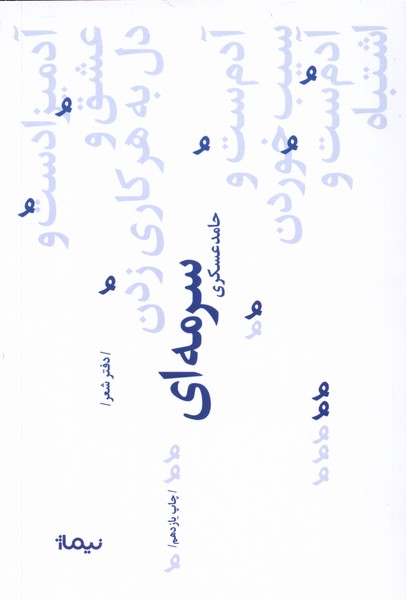 آدمیزادست و
عشق و
دل به هر کاری زدن
آدم‌ست و
سیب خوردن
آدم‌ست و
اشتباه
سرمه‌ای
حامد عسکری
/دفتر شعر/
/چاپ یازدهم/
نیماژ